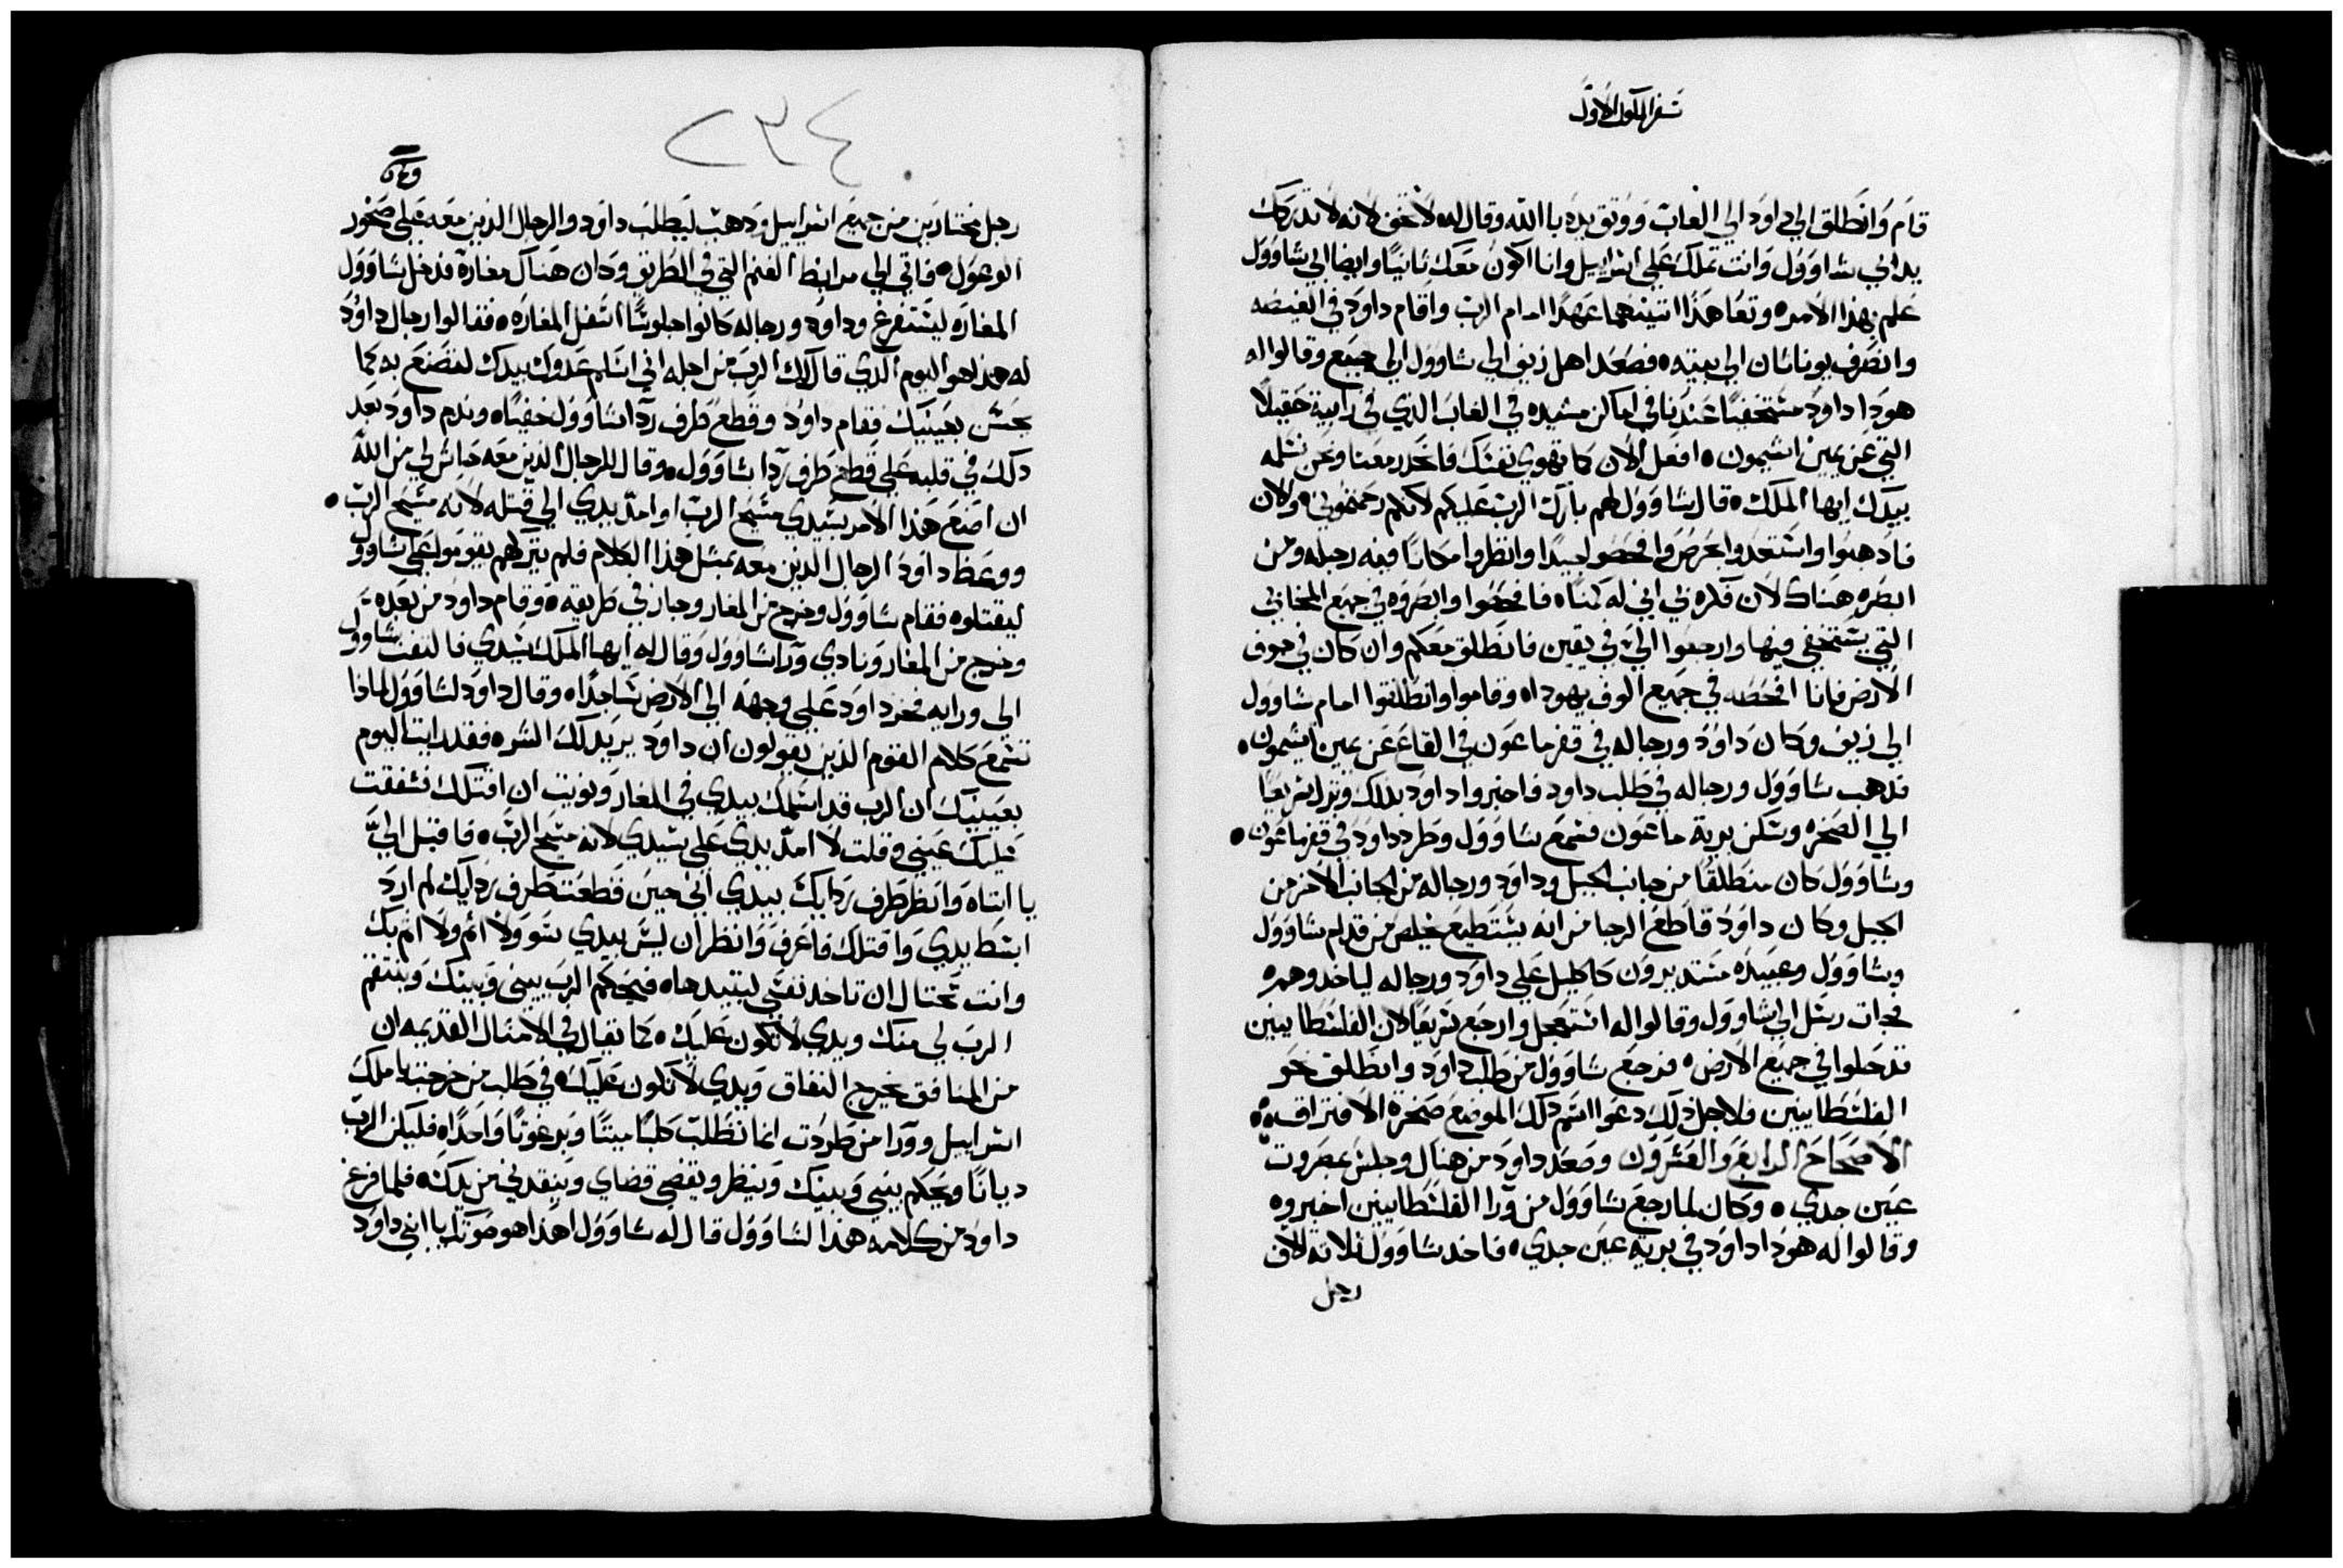 سفر الملوك الاول
قام وانطلق الي داود الي الغاب ووثق يده باالله وقال له لا تخف لانه لا تدركك
يد ابي شاوول وانت تملك علي اسراييل وانا اكون معك ثانيًا وايضا ابي شاوول
علم بهذا الامر ه وتعاهذا اتنينهما عهدًا امام الرب واقام داود في الغيضه
وانصرف يوناثان الي بيته ه فصعد اهل زيف الي شاوول الي جبع وقالوا له
هودا داود مستخفيًا عندنا في اماكن مشيده في الغاب الذي في رابية حقيلا
التي عن يمين اشيمون ه افعل الان كما تهوي نفسك فانحدر معنا ونحن نسلمه
بيدك ايها الملك ه قال شاوول لهم بارك الرب عليكم لانكم رحمتموني ه والان
فادهبوا واستعدوا بحرص وافحصوا جيدًا وانظروا مكانًا فيه رجله ومن
ابصره هناك لان فكره بي اني له كمنًا ه فافحصوا وابصروه في جميع المخابي
التي يستخفي فيها وارجعوا اليّ في يقين فانطلق معكم وان كان في جوف
الارض فانا افحصه في جميع الوف يهودا ه وقاموا وانطلقوا امام شاوول
الي زيف وكان داوود ورجاله في قفر ماعون في القاع عن يمين اشيمون ه
فدهب شاوول ورجاله في طلب داود فاخبروا داود بذلك ونزل سريعًا
الي الصخره وسكن برية ماعون فسمع شاوول وطرد داود في قفر ماعون ه
وشاوول كان منطلقًا من جانب الجبل وداود ورجاله من الجانب الاخر من
الجبل وكان داود قاطع الرجا من انه يستطيع يخلص من قدام شاوول
وشاوول وعبيده مستديرون كاكليل علي داود ورجاله لياخدوهم ه
فجات رسل الي شاوول وقالوا له استعجل وارجع سريعًا لان الفلسطايين
قد حلوا في جميع الارض ه فرجع شاوول من طلب داود وانطلق نحو
الفلسطايين فلاجل ذلك دعوا اسم دلك الموضع صخرة الافتراق ه
الاصحاح الرابع والعشرون وصعد داود من هناك وجلس بمصروت
عين جدي ه وكان لما رجع شاوول من ورا الفلسطايين اخبروه
وقالوا له هودا داود في برية عين جدي ه فاخد شاوول ثلاتة الاف
رجل
٢٣٤
رجل مختارين من جميع اسراييل ودهب ليطلب داود والرجال الذين معه علي صخور
الوعول ه فاتي الي مرابط الغنم التي في الطريق وكان هناك مغارة فدخل شاوول
المغاره ليستفرغ وداود ورجاله كانوا جلوسًا اسفل المغاره ه فقالوا رجال داوود
له هذا هو اليوم الذي قال لك الرب من اجله اني اسلم عدوك بيدك لتصنع به كما
يحسن بعينيك فقام داود وقطع طرف ردا شاوول خفيًا ه وندم داود بعد
دلك في قلبه علي قطع طرف ردا شاوول ه وقال للرجال الذين معه حاش لي من الله
ان اصنع هذا الامر بسيدي مسيح الرب او امدّ يدي الي قتله لانه مسيح الرب ه
ووعظ داود الرجال الذين معه بمثل هذا الكلام فلم يتركهم يقوموا علي شاوول
ليقتلوه فقام شاوول وخرج من المغار وجاز في طريقه ه وقام داود من بعده
وخرج من المغار ونادي ورا شاوول وقال له ايها الملك سيدي فالتفت شاوول
الي ورايه فخر داود علي وجهه الي الارض ساجدًا ه وقال داود لشاوول لماذا
تسمع كلام القوم الذين يقولون ان داود يريد لك الشر ه فقد رايت اليوم
بعينيك ان الرب قد اسلمك بيدي في المغار ونويت ان اقتلك فشفقت
عليك عيني وقلت لا امدّ يدي علي سيدي لانه مسيح الرب ه فاقبل اليّ
يا ابتاه وانظر طرف ردايك بيدي اني حين قطعت طرف ردايك لم ارد
ابسط يدي واقتلك فاعرف وانظر ان ليس بيدي سو ولا اثم ولا اثم بك
وانت تحتال ان تاخد نفسي لتبيدها ه فيحكم الرب بيني وبينك وينتقم
الرب لي منك ويدي لا تكون عليك ه كما يقال في الامثال القديمه ان
من المنافق يخرج النفاق ويدي لا تكون عليك ه في طلب من خرجت يا ملك
اسراييل وورا من طردت انما تطلب كلبًا ميتًا وبرغوثًا واحدًا ه فليكن الرب
ديانًا ويحكم بيني وبينك وينظر ويقضي قضاي وينقدني من يدك ه فلما فرغ
داود من كلامه هذا لشاوول قال له شاوول اهذا هو صوتك يا ابني داود